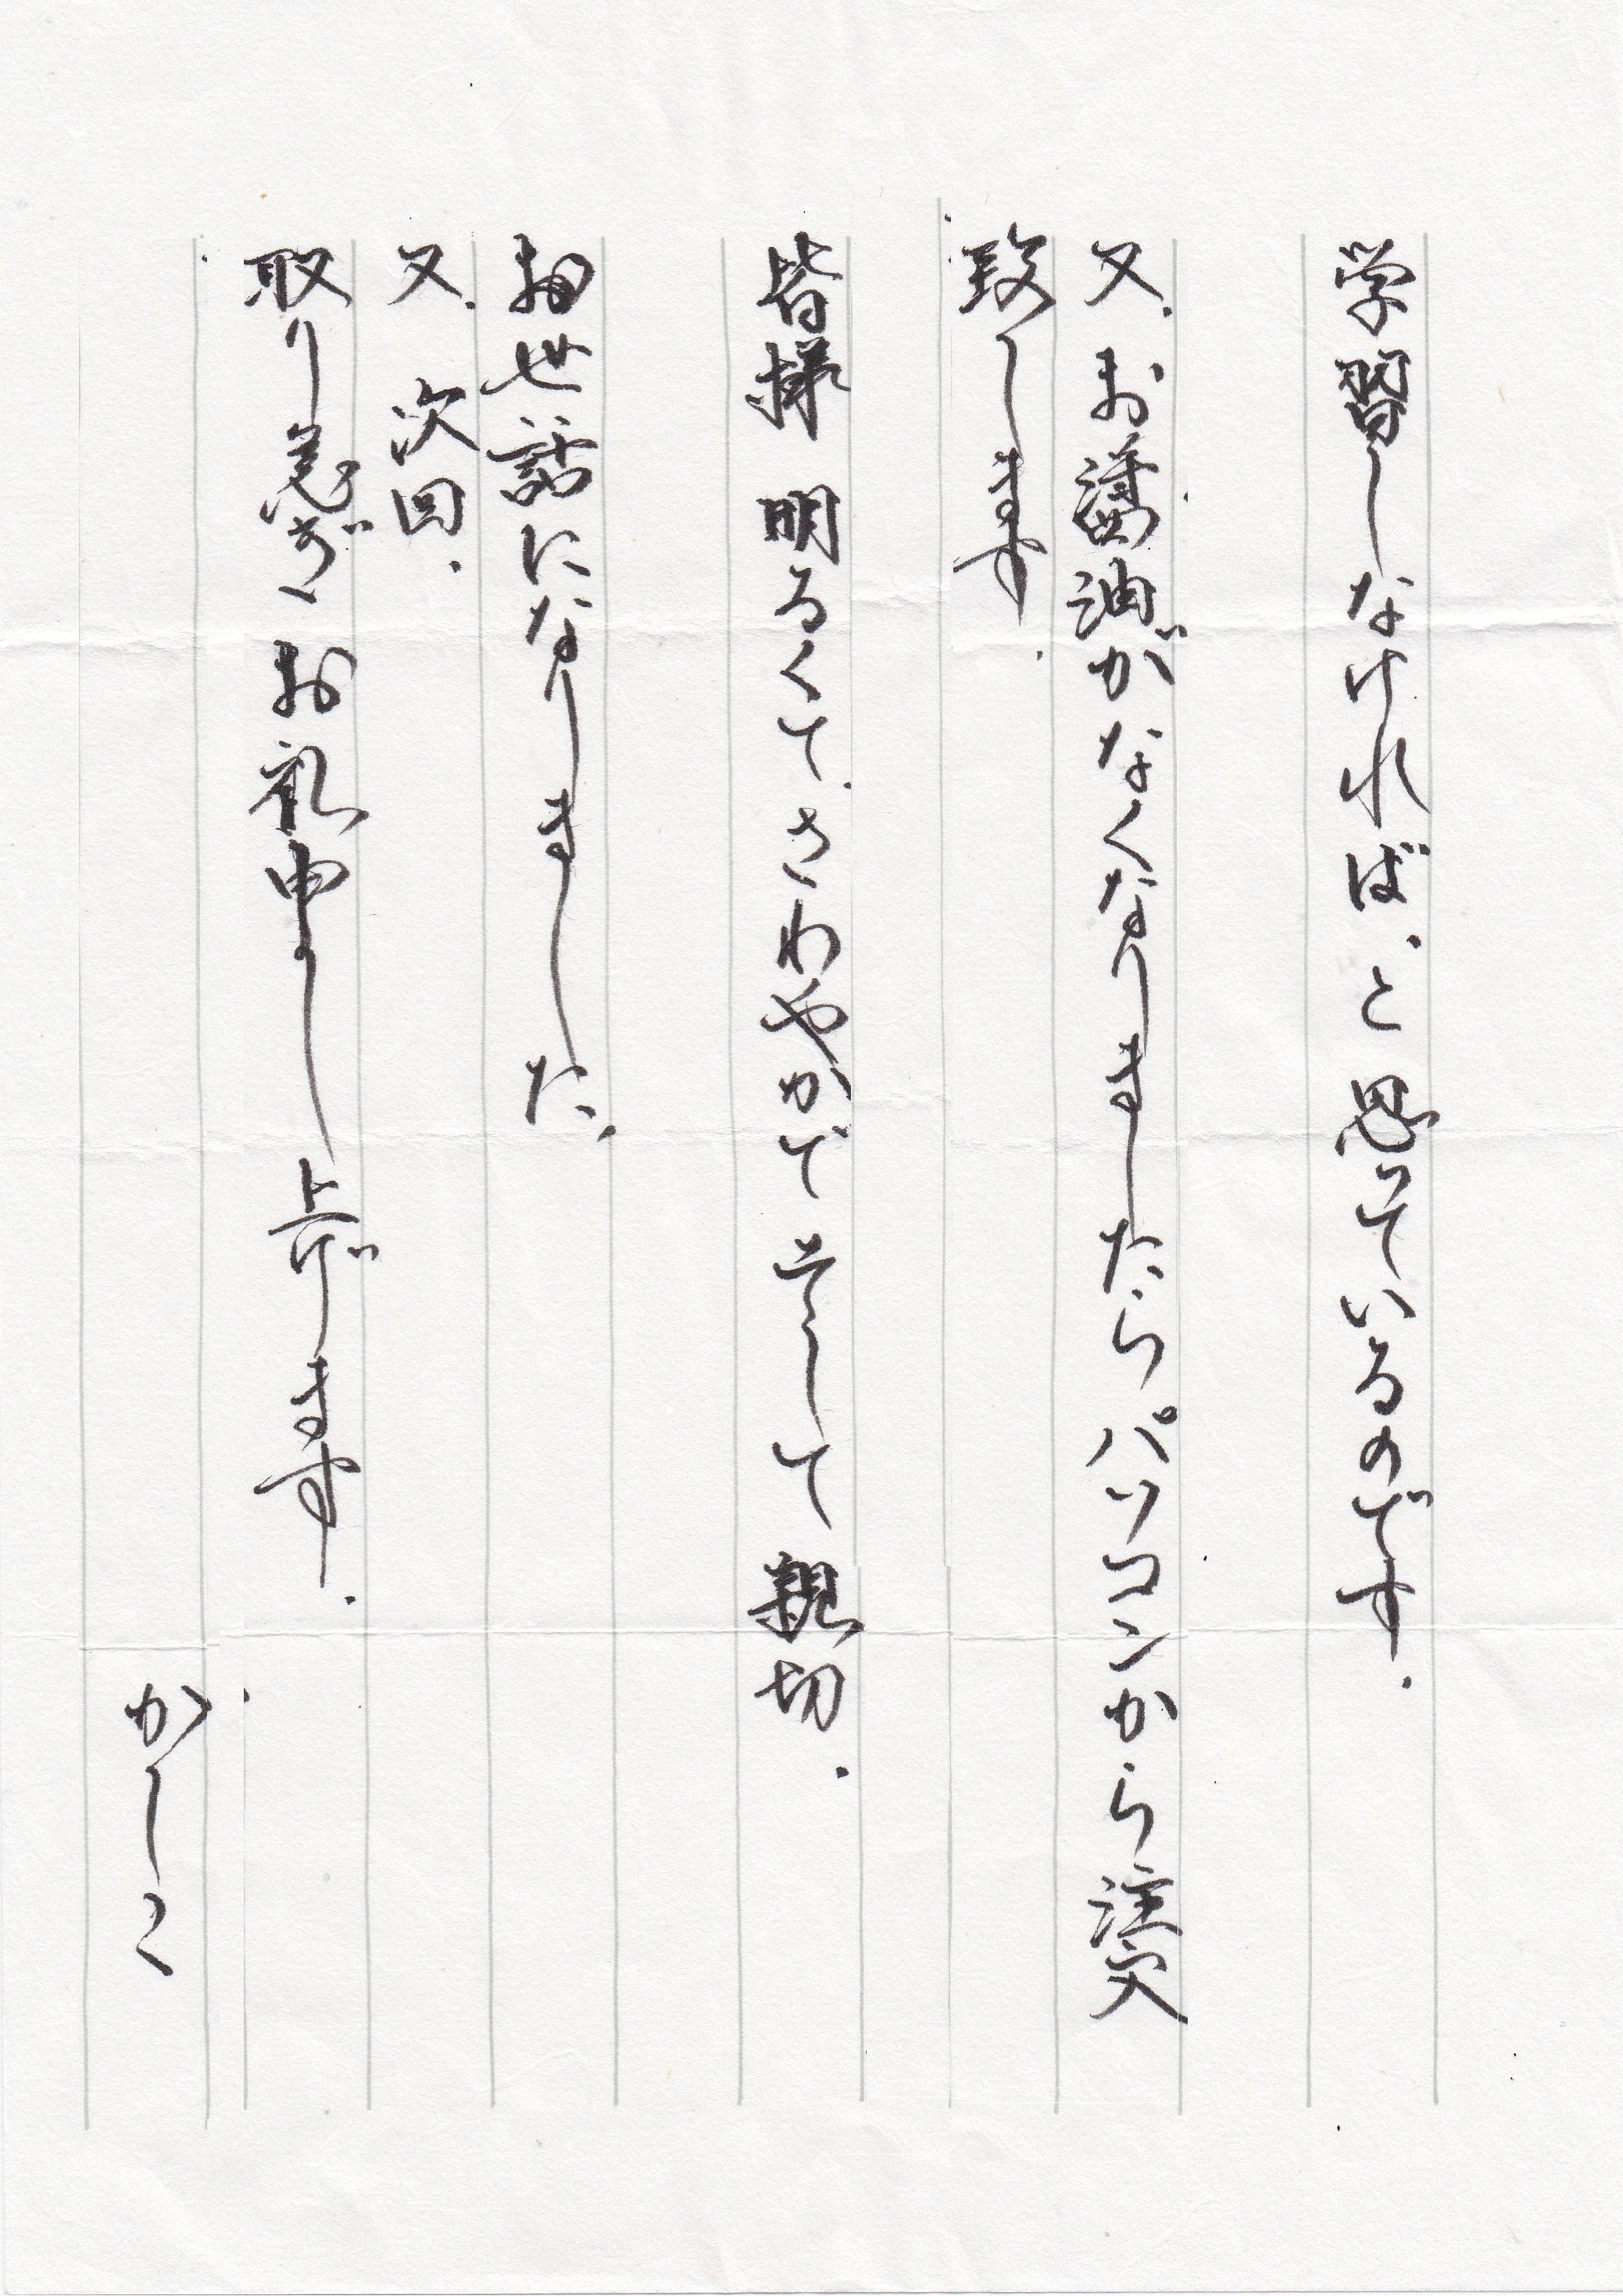 学習しなければ、と思っているのです.
又、お醤油がなくなりましたらパソコンから注文
致します.
皆様 明るくて、さわやかで そして 親切.
お世話になりました、
又、次回.
取り急ぎ お礼申し上げます.
かしこ